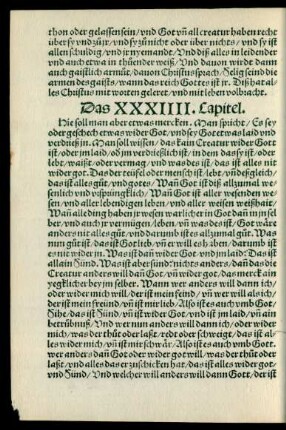 thon oder gelassen sein/ vnd Got vñ all creatur haben recht
über sy vnd zůir/ vnd sy zůnicht oder über nichts/ vnd sy ist
allen schuldig/ vnd ir nyemandt. Vnd diß alles in leidender
vnd auch etwa in thůender weiß/ Vnd dauon wirdt dann
auch gaistlich armůt/ dauon Christus sprach/ Selig seind die
armen des gaists/ wann das reich Gottes ist ir. Diß hat al-
les Christus mit worten gelernt/ vnd mit leben volbracht.
Das XXXIIII. Capitel.
Hie soll man aber etwas mercken. Man spricht/ Es sey
oder geschech etwas wider Got/ vnd sey Got etwas laid vnd
verdieß jn. Man soll wissen/ das kain Creatur wider Gott
ist/ oder jm laid/ oď jm verdießlich ist/ in dem das sy ist/ oder
lebt/ waißt/ oder vermag/ vnd was des ist/ das ist alles nit
wider got. Das der teüfel oder mensch ist/ lebt/ vñ deßgleich/
das ist alles gůt/ vnd gotes/ Wañ Got ist diß allzumal we-
senlich vnd vrspringklich/ Wañ Got ist aller wesenden we-
sen/ vnd aller lebendigen leben/ vnd aller weisen weißhait/
Wañ all ding haben jr wesen warlicher in Got dañ in jn sel
ber/ vnd auch jr vermügen/ leben/ vñ was des ist/ Got wäre
anders nit alles gůt/ vnd darumb ist es allzumal gůt. Was
nun gůt ist/ das ist Got lieb/ vñ er will es haben/ darumb ist
es nit wider jn. Was ist dañ wider Got/ vnd jm laid? Das ist
allain Sünd. Was ist aber sünd? nichts anders/ dañ das die
Creatur anders will dañ Got/ vñ wider got/ das merck ain
yegklicher bey jm selber. Wann wer anders will dann ich/
oder wider mich will/ der ist mein feind/ vñ wer will als ich/
der ist mein freünd/ vñ ist mir lieb. Also ist es auch vmb Got
Sihe/ das ist Sünd/ vñ ist wider Got/ vnd ist jm laid/ vñ ain
betrübnuß/ Vnd wer nun anders will dann ich/ oder wider
mich/ was der thůt oder laßt/ redt oder schweigt/ das ist al-
les wider mich/ vñ ist mir schwär/ Also ist es auch vmb Gott.
wer anders dañ Got oder wider got will/ was der thůt oder
laßt/ vnd alles das er zuschicken hat/ das ist alles wider got/
vnd Sünd/ Vnd welcher will anders will dann Gott/ der ist